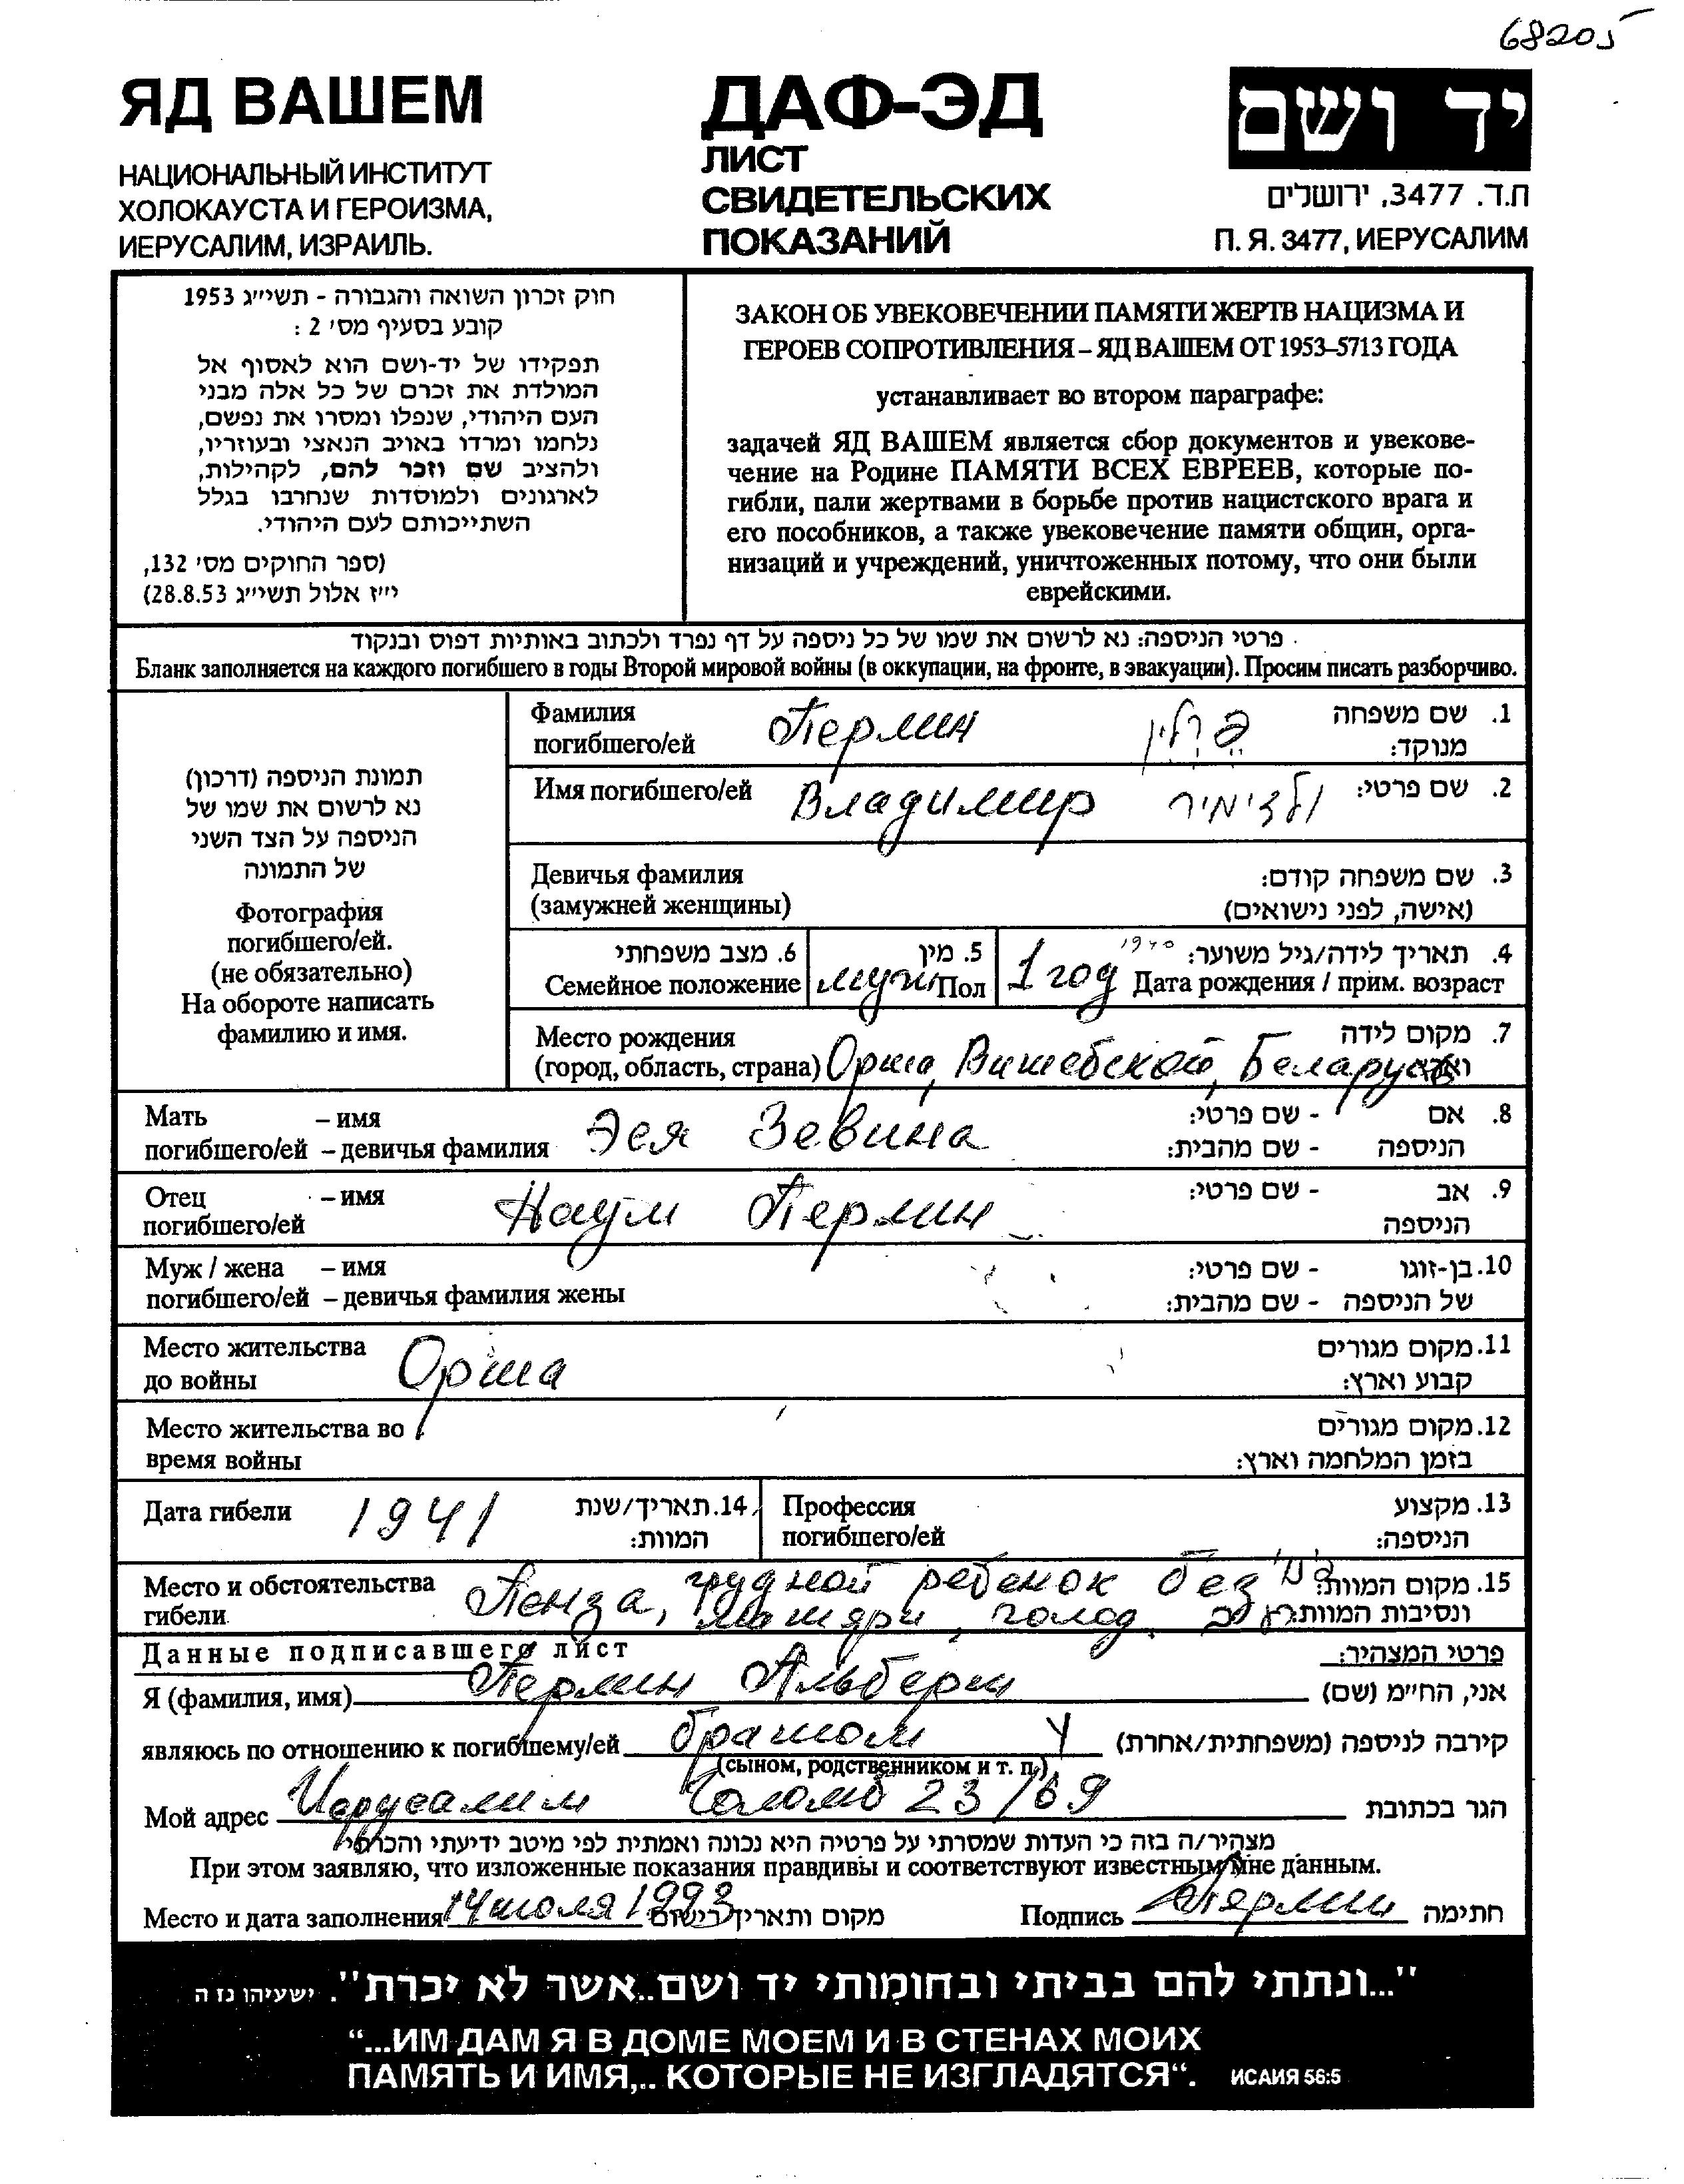 68205
ЯД ВАШЕМ
НАЦИОНАЛЬНЫЙ ИНСТИТУТ
ХОЛОКАУСТА И ГЕРОИЗМА,
ИЕРУСАЛИМ, ИЗРАИЛЬ.
ДАФ-ЭД
ЛИСТ
СВИДЕТЕЛЬСКИХ
ПОКАЗАНИЙ
יד ושם
ת.ד. 3477, ירושלים
П. Я. 3477, ИЕРУСАЛИМ
חוק זכרון השואה והגבורה - תשי״ג 1953
קובע בסעיף מס׳ 2 :
תפקידו של יד-ושם הוא לאסוף אל
המולדת את זכרם של כל אלה מבני
העם היהודי, שנפלו ומסרו את נפשם,
נלחמו ומרדו באויב הנאצי ובעוזריו,
ולהציב שם וזכר להם, לקהילות,
לארגונים ולמוסדות שנחרבו בגלל
השתייכותם לעם היהודי.
(ספר החוקים מס׳ 132,
י״ז אלול תשי״ג 28.8.53)
ЗАКОН ОБ УВЕКОВЕЧЕНИИ ПАМЯТИ ЖЕРТВ НАЦИЗМА И
ГЕРОЕВ СОПРОТИВЛЕНИЯ – ЯД ВАШЕМ ОТ 1953–5713 ГОДА
устанавливает во втором параграфе:
задачей ЯД ВАШЕМ является сбор документов и увекове-
чение на Родине ПАМЯТИ ВСЕХ ЕВРЕЕВ, которые по-
гибли, пали жертвами в борьбе против нацистского врага и
его пособников, а также увековечение памяти общин, орга-
низаций и учреждений, уничтоженных потому, что они были
еврейскими.
פרטי הניספה: נא לרשום את שמו של כל ניספה על דף נפרד ולכתוב באותיות דפוס ובנקוד
Бланк заполняется на каждого погибшего в годы Второй мировой войны (в оккупации, на фронте, в эвакуации). Просим писать разборчиво.
תמונת הניספה (דרכון)
נא לרשום את שמו של
הניספה על הצד השני
של התמונה
Фотография
погибшего/ей.
(не обязательно)
На обороте написать
фамилию и имя.
Фамилия Перлин פרלין 1. שם משפחה
погибшего/ей מנוקד:
Имя погибшего/ей Владимир ולדימיר 2. שם פרטי:
Девичья фамилия 3. שם משפחה קודם:
(замужней женщины) (אישה, לפני נישואים)
6. מצב משפחתי 5. מין 1940 4. תאריך לידה/גיל משוער:
Семейное положение муж Пол 1 год Дата рождения / прим. возраст
Место рождения 7. מקום לידה
(город, область, страна) Орша, Витебской, Беларусь וארץ
Мать – имя Эся Зевина - שם פרטי: 8. אם
погибшего/ей – девичья фамилия - שם מהבית: הניספה
Отец – имя Наум Перлин - שם פרטי: 9. אב
погибшего/ей הניספה
Муж / жена – имя - שם פרטי: 10. בן-זוגו
погибшего/ей – девичья фамилия жены - שם מהבית: של הניספה
Место жительства Орша 11. מקום מגורים
до войны קבוע וארץ:
Место жительства во 12. מקום מגורים
время войны בזמן המלחמה וארץ:
Дата гибели 1941 14. תאריך/שנת Профессия 13. מקצוע
המוות: погибшего/ей הניספה:
Место и обстоятельства Пенза, грудной ребенок без 15. מקום המוות:
гибели матери, голод. רעב ונסיבות המוות:
Данные подписавшего лист פרטי המצהיר:
Я (фамилия, имя) Перлин Альберт אני, החי״מ (שם)
являюсь по отношению к погибшему/ей братом קירבה לניספה (משפחתית/אחרת)
(сыном, родственником и т. п.)
Мой адрес Иерусалим Голомб 23/69 הגר בכתובת
מצהיר/ה בזה כי העדות שמסרתי על פרטיה היא נכונה ואמתית לפי מיטב ידיעתי והכרתי
При этом заявляю, что изложенные показания правдивы и соответствуют известным мне данным.
Место и дата заполнения 14 июля 1993 מקום ותאריך רישום Подпись Перлин חתימה
"...ונתתי להם בביתי ובחומותי יד ושם..אשר לא יכרת". ישעיהו נז ה
“...ИМ ДАМ Я В ДОМЕ МОЕМ И В СТЕНАХ МОИХ
ПАМЯТЬ И ИМЯ,.. КОТОРЫЕ НЕ ИЗГЛАДЯТСЯ“. ИСАИЯ 56:5